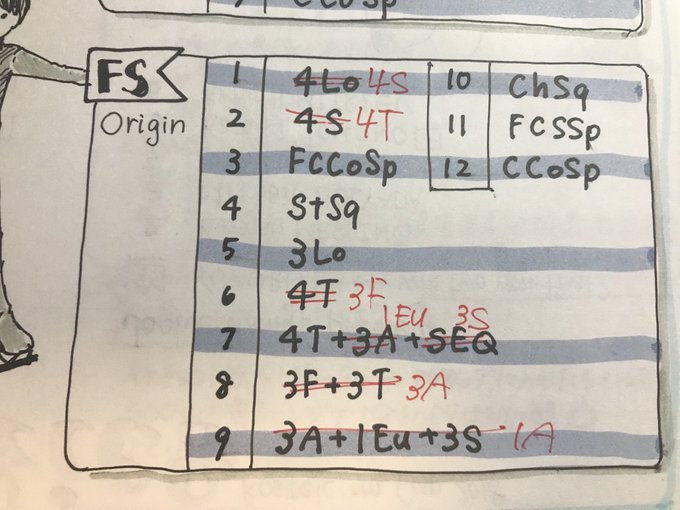 7 CCoSp
FS
Origin
1 4Lo 4S
2 4S 4T
3 FCCoSp
4 StSq
5 3Lo
6 4T 3F
1Eu 3S
7 4T+3A+SEQ
8 3F+3T 3A
9 3A+1Eu+3S 1A
10 ChSq
11 FCSSp
12 CCoSp